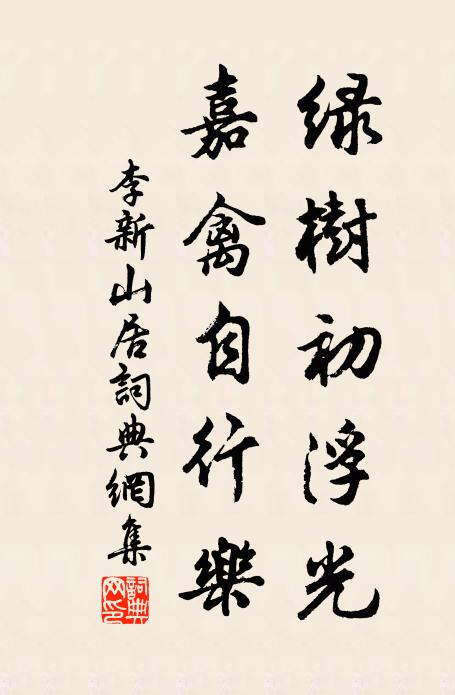 绿樹初浮光
嘉禽自行樂
李新山居詞典網集
詞典网印